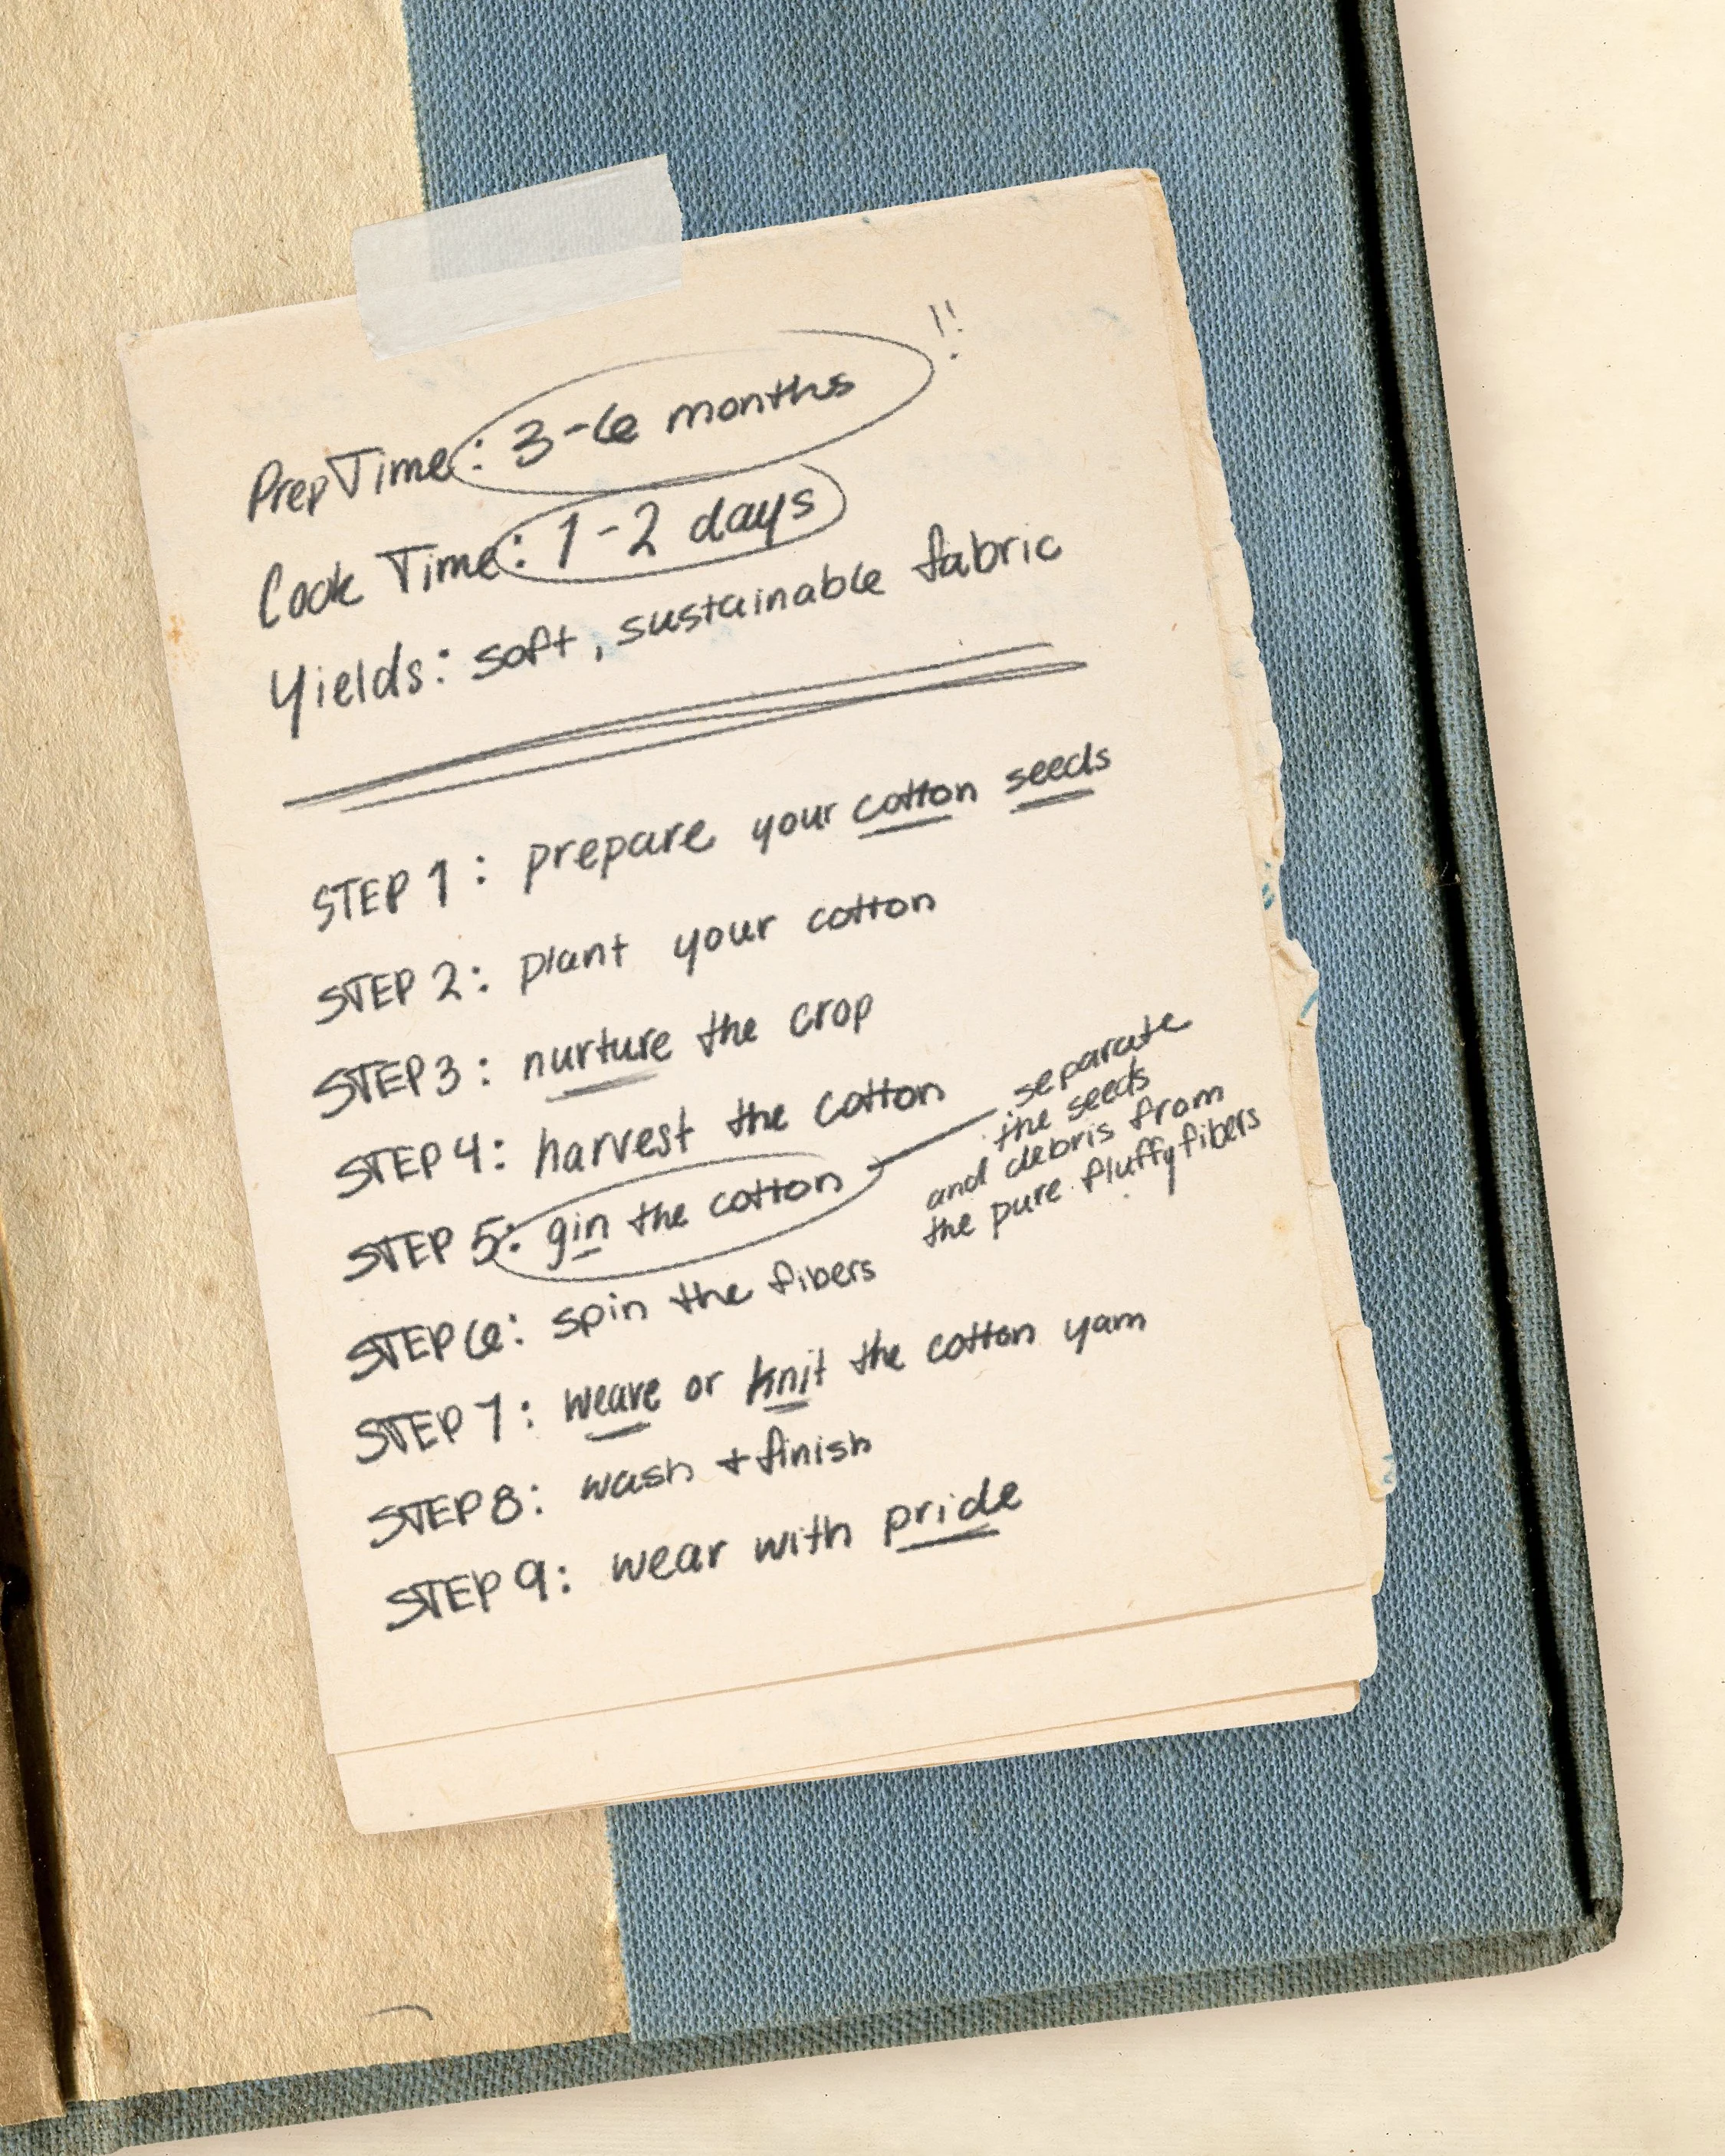 Prep Time: 3-6 months !!
Cook Time: 1-2 days
Yields: soft, sustainable fabric
STEP 1: prepare your cotton seeds
STEP 2: plant your cotton
STEP 3: nurture the crop
STEP 4: harvest the cotton
STEP 5: gin the cotton
separate
the seeds
and debris from
the pure fluffy fibers
STEP 6: spin the fibers
STEP 7: weave or knit the cotton yarn
STEP 8: wash + finish
STEP 9: wear with pride